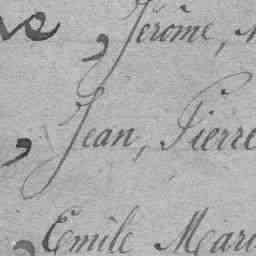 , Jérôme,
, Jean, Pierre
, Emile Mari